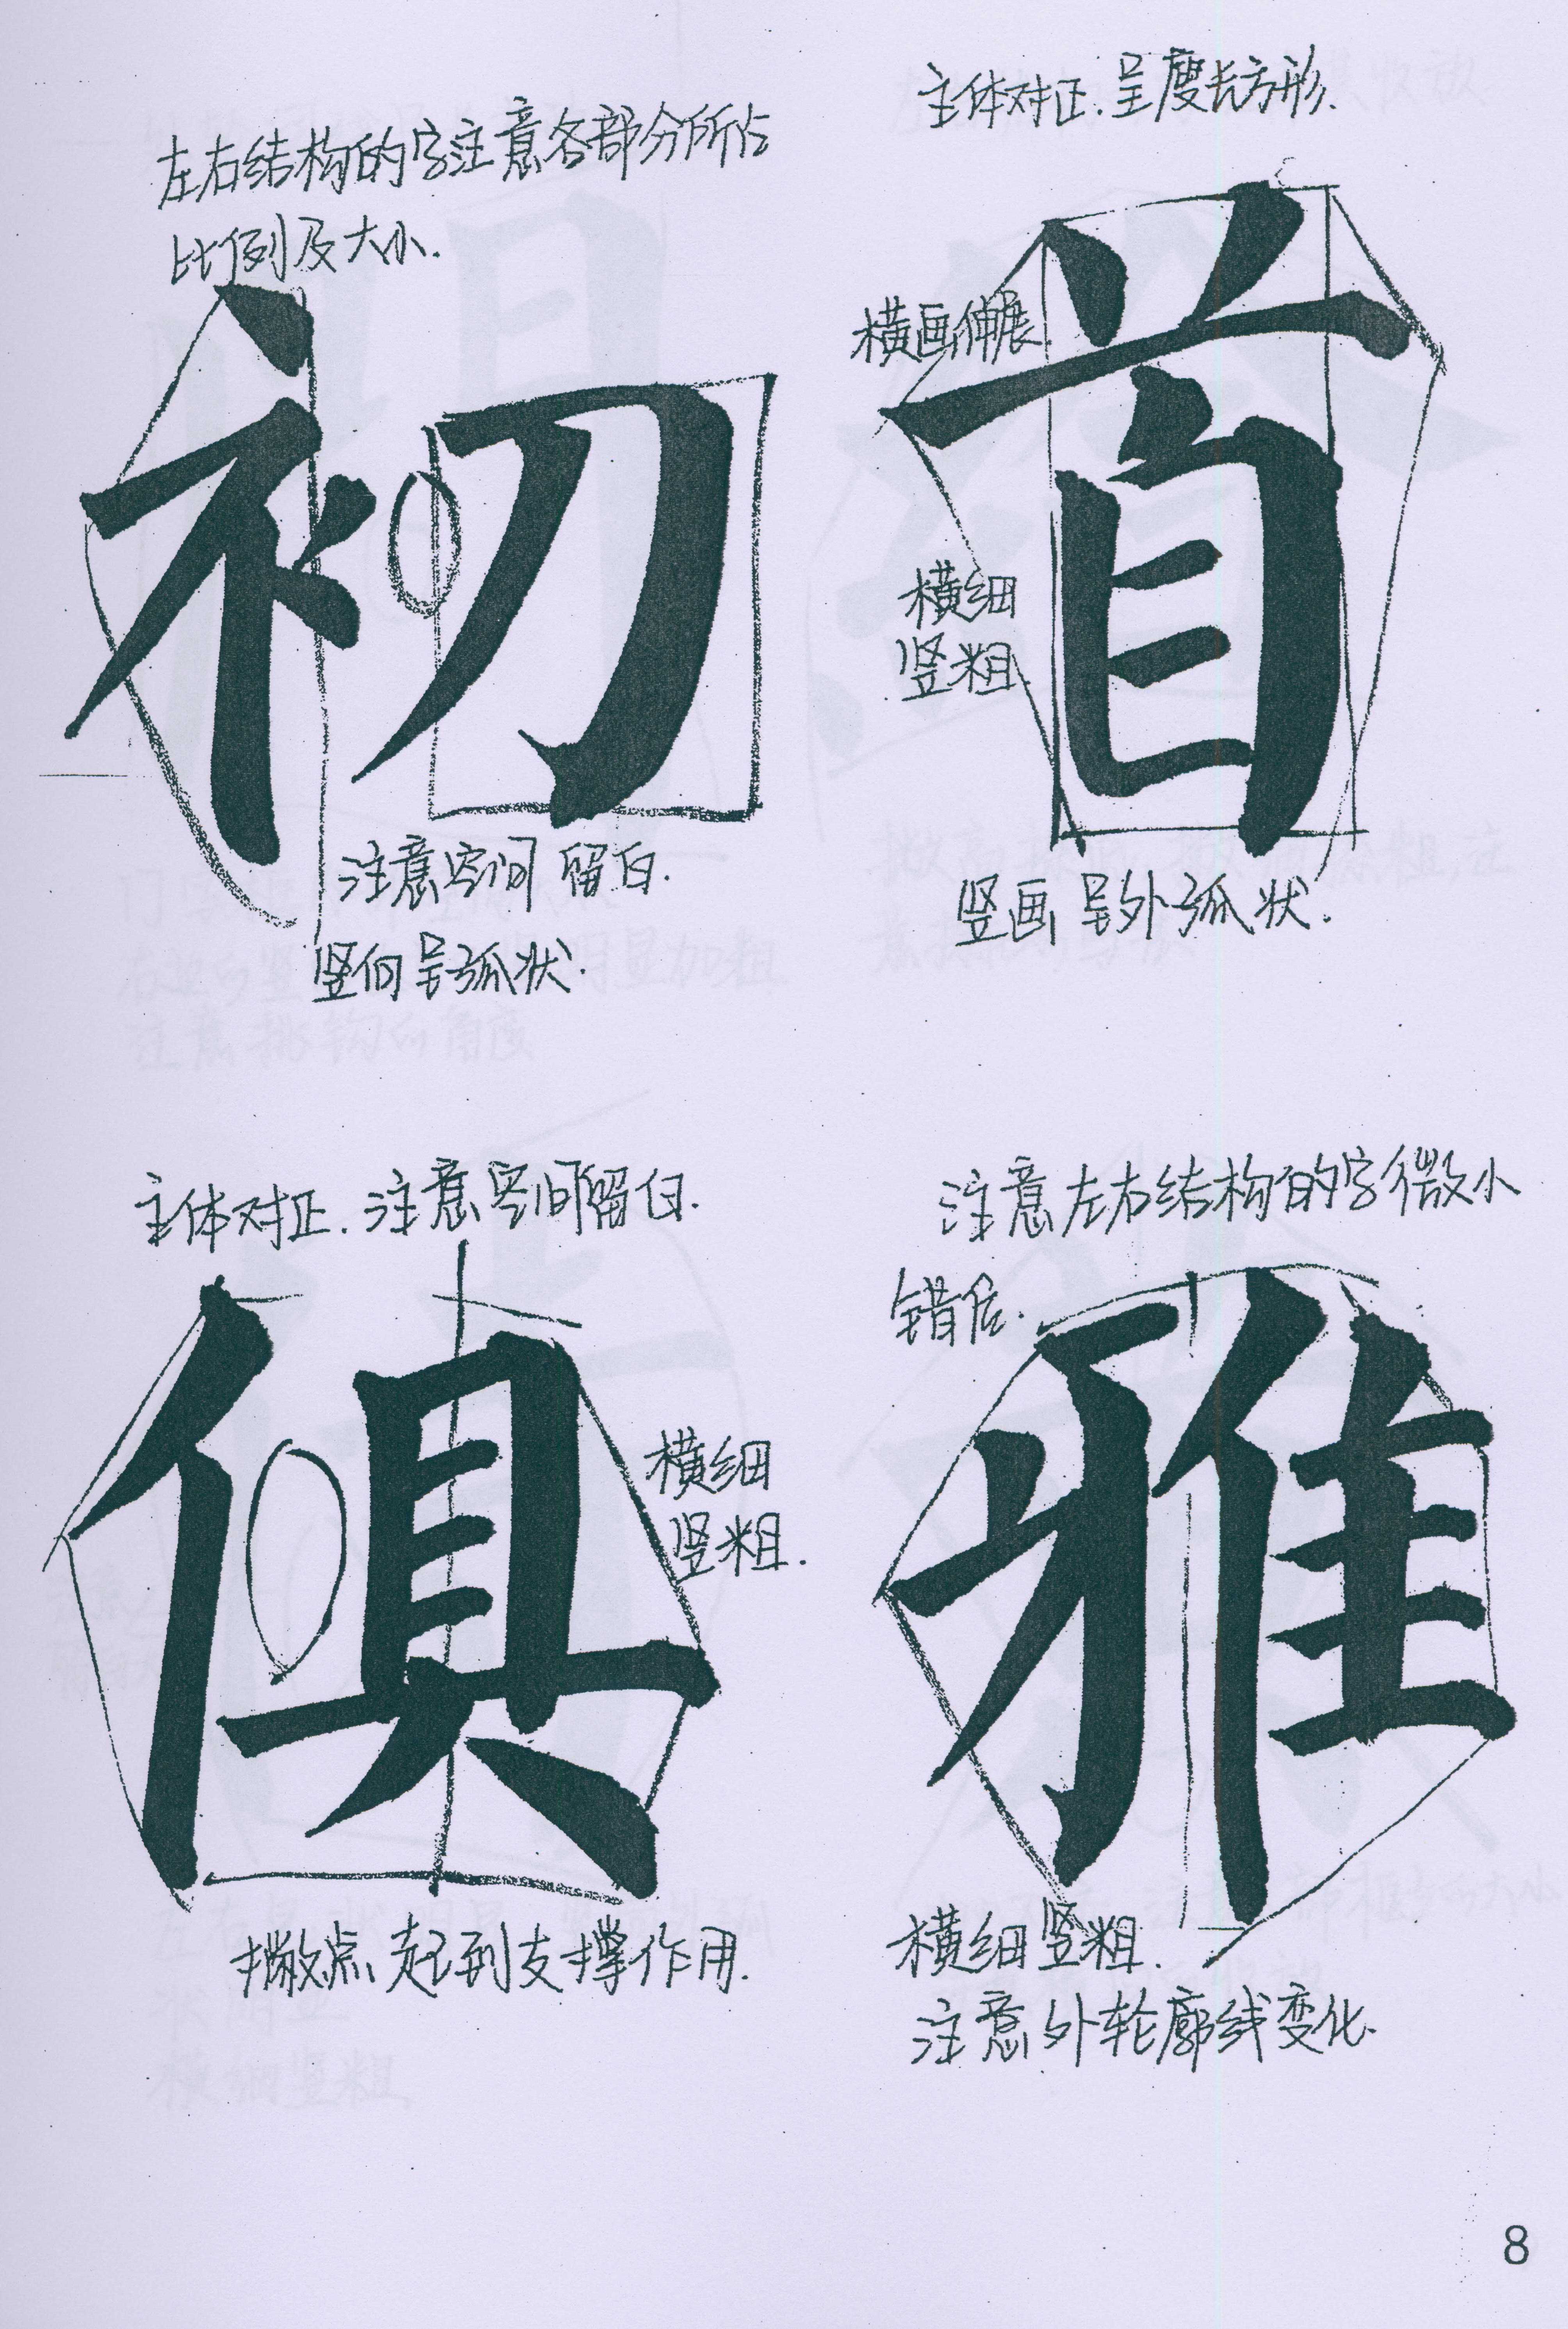 左右结构的字注意各部分所占
比例及大小.
初
注意空间留白.
竖向呈弧状.
主体对正.呈度长方形.
首
横画伸展
横细
竖粗
竖画呈外弧状.
主体对正.注意空间留白.
俱
横细
竖粗.
撇点起到支撑作用.
注意左右结构的字微小
错位.
雅
横细竖粗.
注意外轮廓线变化.
8